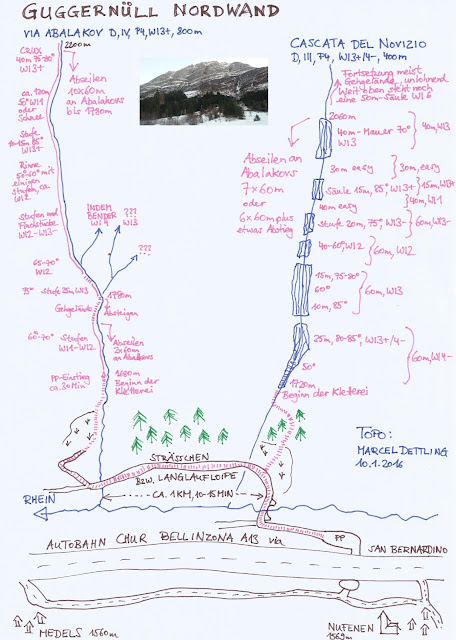 GUGGERNÜLL NORDWAND
VIA ABALAKOV D, IV, P4, WI3+, 800m
2200m
CRUX
40m 75-80°
WI3+
Abseilen
10x60m
an Abalakovs
bis 1780m
ca. 120m
50° WI1
oder
Schnee
Stufe
10-15m, 85°
WI3+
Rinne
50°-60° mit
einigen
Stufen, ca
WI2
Stufen und
Flachstücke
WI2-WI3-
INDEM
BENDER
WI4
???
WI3
???
65-70°
WI2
75° Stufe 25m, WI3
Gehgelände
1780m
Absteigen
60°-70° Stufen
WI1-WI2
Abseilen
2x60m
an Abalakovs
PP-Einstieg
ca. 30 Min
1680m
Beginn der
Kletterei
CASCATA DEL NOVIZIO
D, III, P4, WI3+/4-, 400m
Fortsetzung meist
Gehgelände, unlohnend
Weit oben steht noch
eine 50m-Säule WI6
2060m
40m-Mauer 70°
40m, WI3
Abseilen an
Abalakovs
7x60m
oder
6x60m plus
etwas Abstieg
30m easy
30m, easy
Säule 15m, 85°, WI3+
15m, WI3+
40m easy
40m, WI1
Stufe 20m, 75°, WI3-
60m, WI3-
40-60°, WI2
60m, WI2
15m, 75-80°
60°
10m, 85°
60m, WI3
25m, 80-85°, WI3+/4-
50°
60m, WI4-
1720m
Beginn der Kletterei
STRÄSSCHEN
BZW. LANGLAUFLOIPE
CA. 1KM, 10-15MIN
TOPO:
MARCEL DETTLING
10.1.2016
RHEIN
PP
AUTOBAHN CHUR BELLINZONA A13 via
SAN BERNARDINO
MEDELS 1560m
NUFENEN
1569m